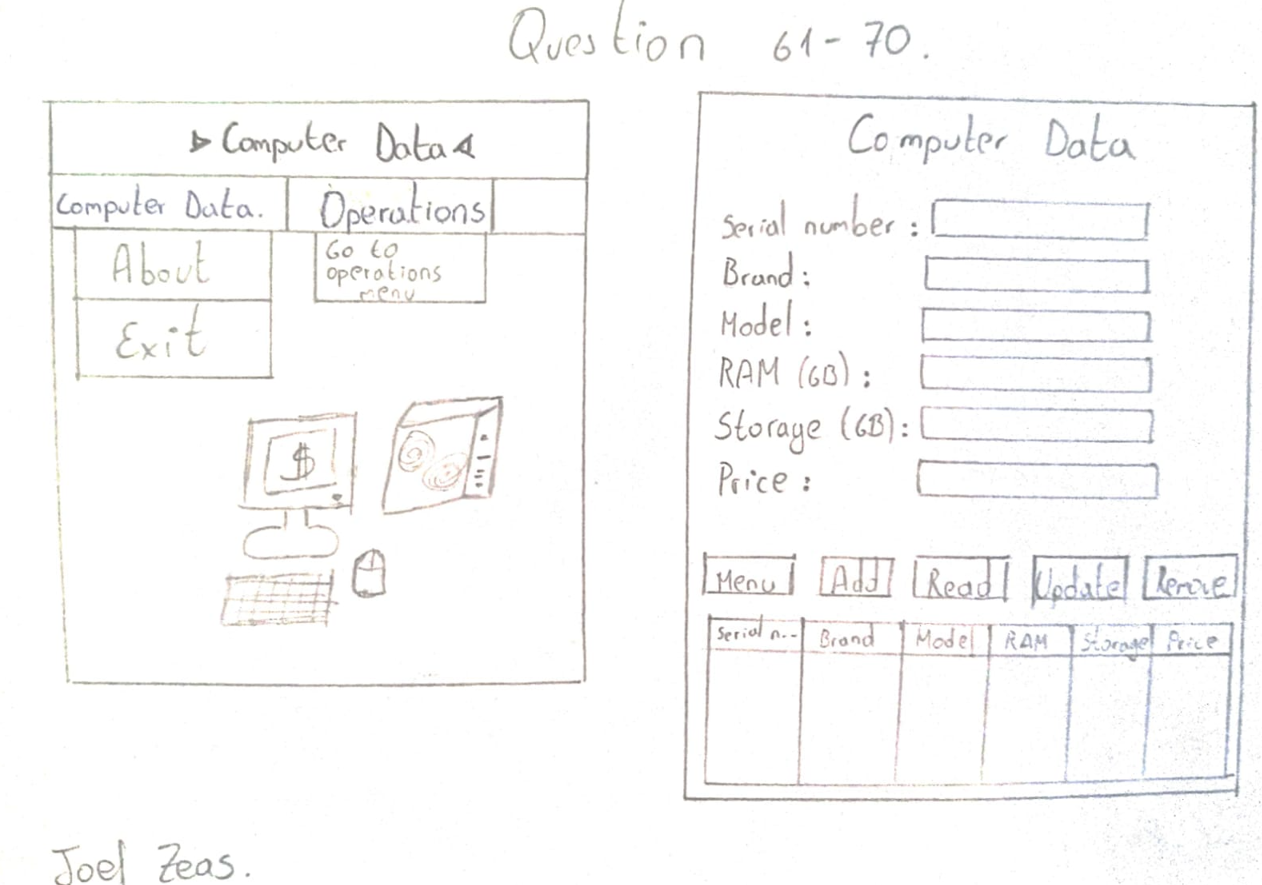 Question 61-70.
Computer Data
Computer Data.
Operations
About
Exit
Go to
operations
menu
$
Computer Data
Serial number:
Brand:
Model:
RAM (GB):
Storage (GB):
Price:
Menu Add Read Update Remove
Serial n.. Brand Model RAM Storage Price
Joel Zeas.